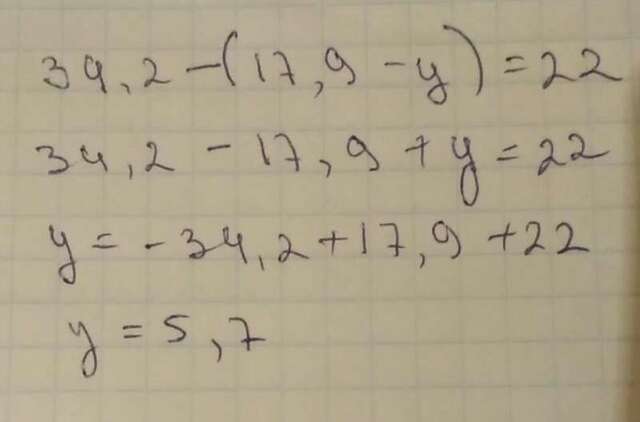 34,2-(17,9-y)=22
34,2-17,9+y=22
y=-34,2+17,9+22
y=5,7